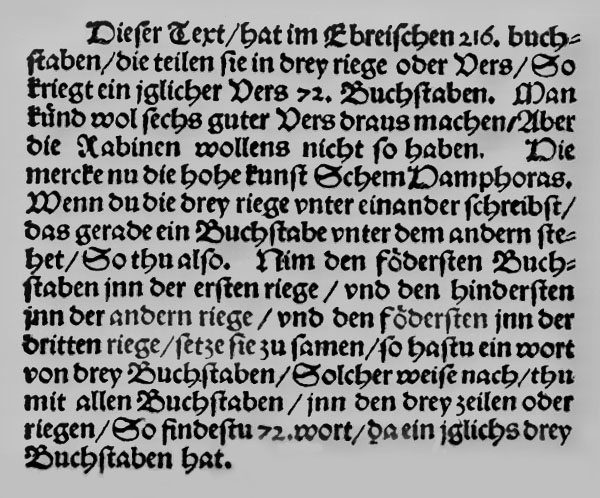 Dieser Text/hat im Ebreischen 216. buch⸗
staben/die teilen sie in drey riege oder Vers/So
kriegt ein jglicher Vers 72. Buchstaben. Man
kuͤnd wol sechs guter Vers draus machen/Aber
die Rabinen wollens nicht so haben. Die
mercke nu die hohe kunst Schem Hamphoras.
Wenn du die drey riege vnter einander schreibst/
das gerade ein Buchstabe vnter dem andern ste⸗
het/So thu also. Nim den foͤdersten Buch⸗
staben jnn der ersten riege/vnd den hindersten
jnn der andern riege/vnd den foͤdersten jnn der
dritten riege/setze sie zu samen/so hastu ein wort
von drey Buchstaben/Solcher weise nach/thu
mit allen Buchstaben/jnn den drey zeilen oder
riegen/So findestu 72.wort/da ein jglichs drey
Buchstaben hat.